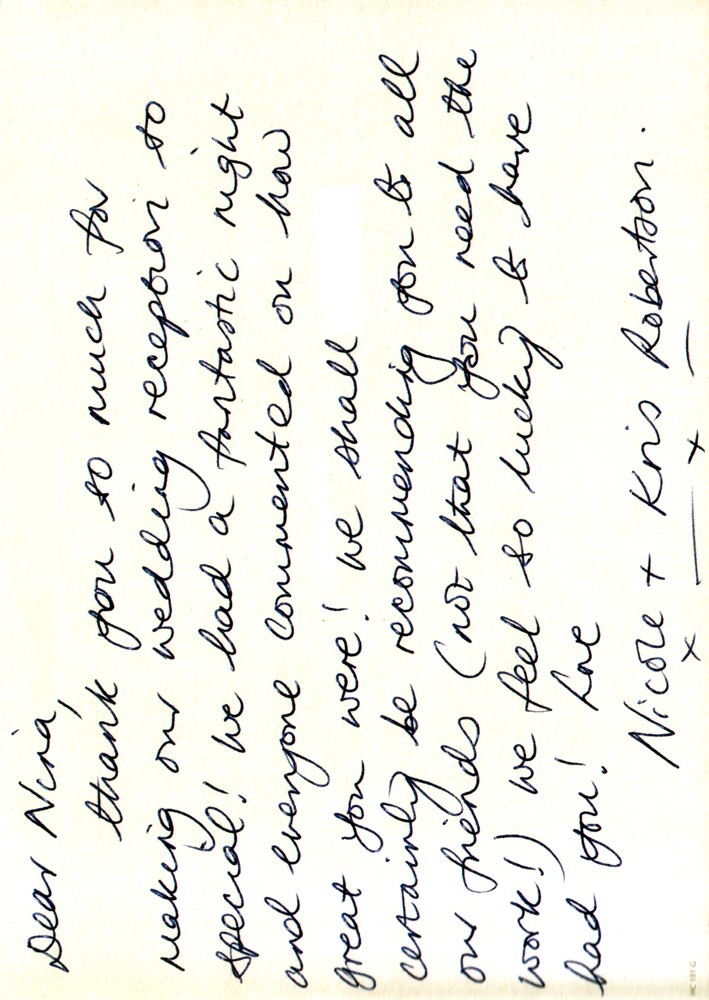 Dear Nina,
thank you so much for
making our wedding reception so
special! We had a fantastic night
and everyone commented on how
great you were! We shall
certainly be recommending you to all
our friends (not that you need the
work!) We feel so lucky to have
had you! Love
Nicole + Kris Robertson.
x x
HC 151 G